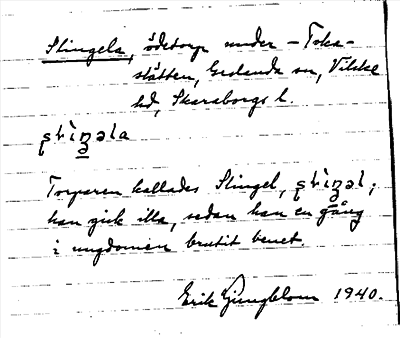 Slingela, ödetorp under - Toka-
stätten, Grolanda sn, Vilske
hd, Skaraborgs l.
Torparen kallades Slingel,
han gick illa, sedan han en gång
i ungdomen brutit benet.
Erik Ljungblom 1940.